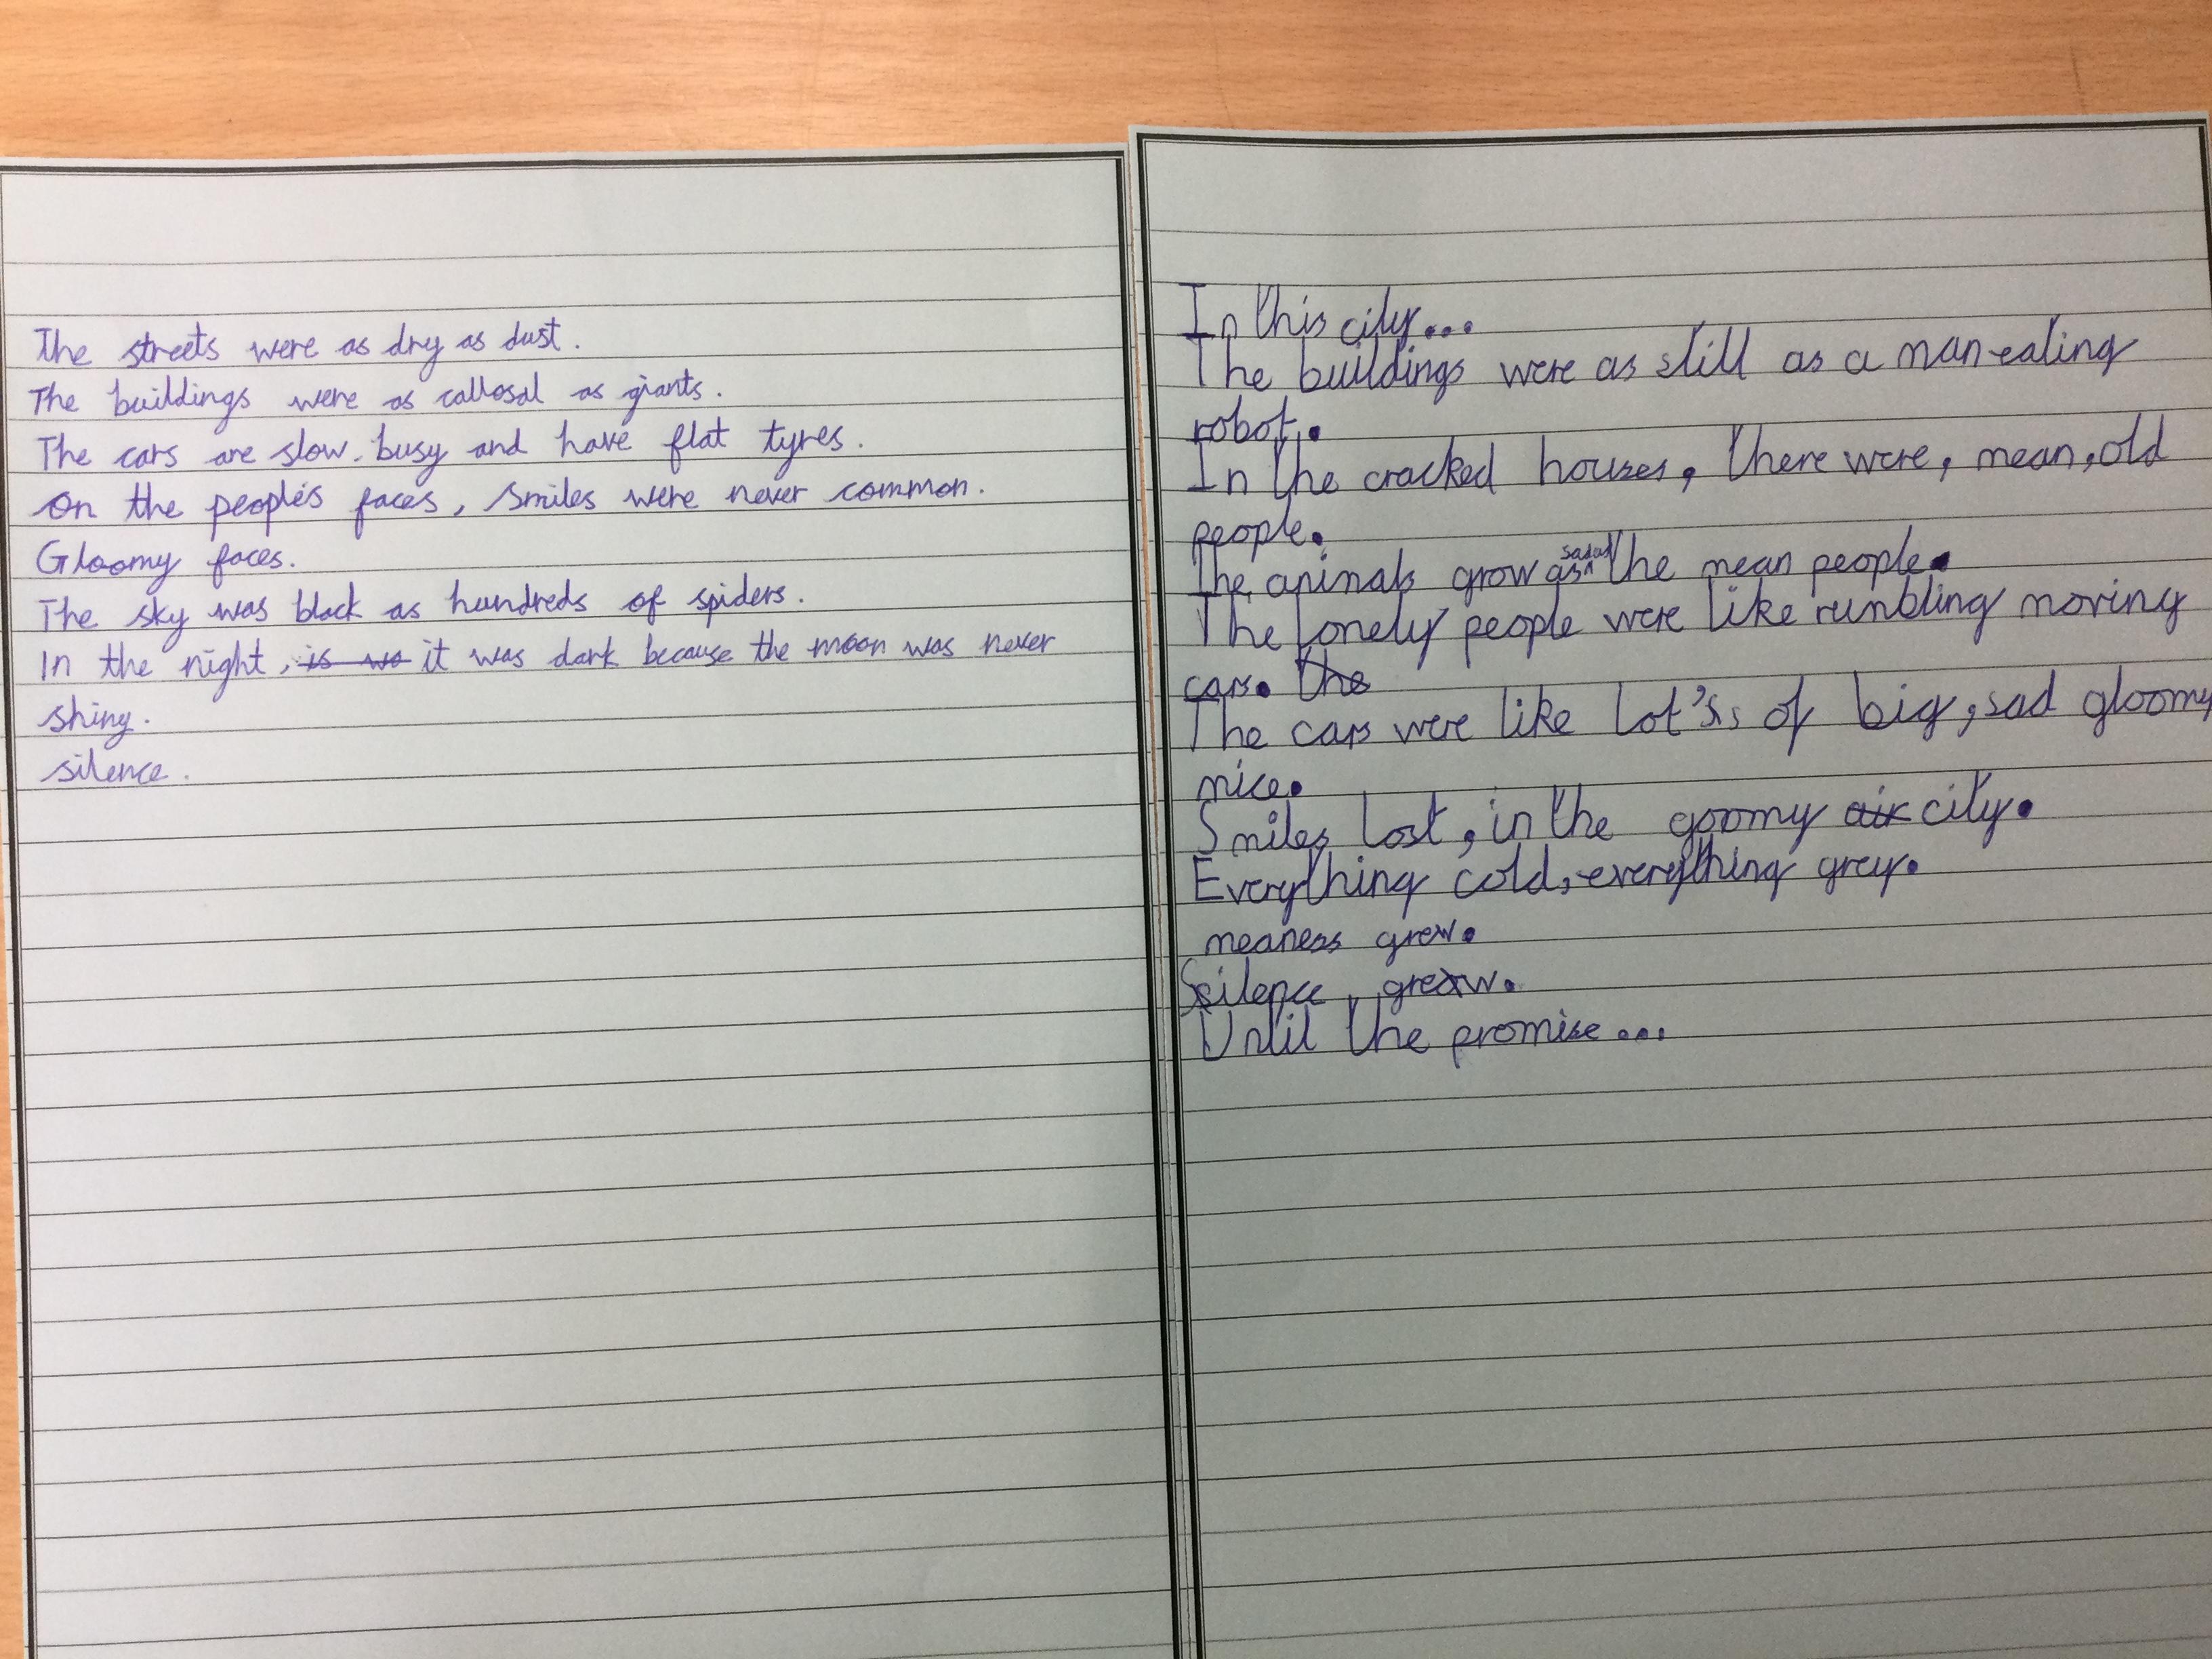 The streets were as dry as dust.
The buildings were as callosal as giants.
The cars are slow. busy and have flat tyres.
On the people's faces, smiles were never common.
Gloomy faces.
The sky was black as hundreds of spiders.
In the night, it was dark because the moon was never
shiny.
silence.
In this city...
The buildings were as still as a man-eating
robot.
In the cracked houses, there were, mean, old
people.
The animals grow as the mean people.
The lonely people were like rumbling moving
cars. the
The cars were like lot's of big, sad gloomy
mice.
Smiles lost, in the goomy air city.
Everything cold, everything grey.
meaness grew.
Silence, grew.
Until the promise...